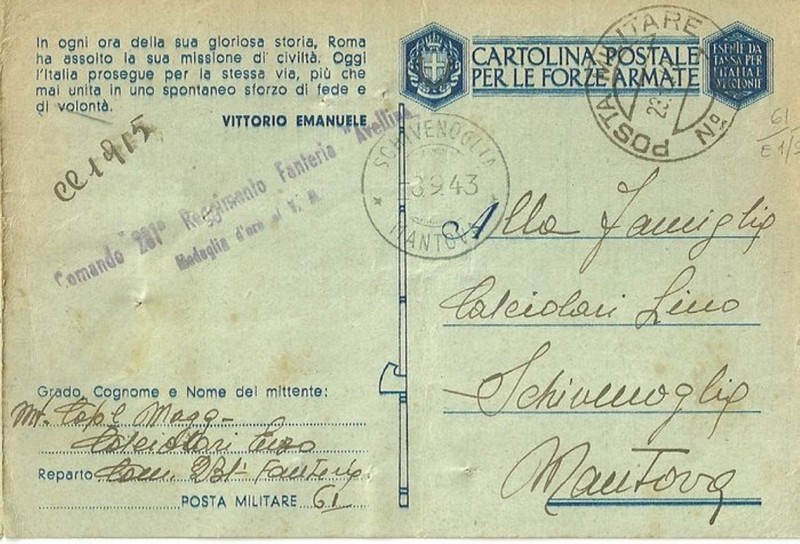 In ogni ora della sua gloriosa storia, Roma
ha assolto la sua missione di civiltà. Oggi
l'Italia prosegue per la stessa via, più che
mai unita in uno spontaneo sforzo di fede e
di volontà.
VITTORIO EMANUELE
CARTOLINA POSTALE
PER LE FORZE ARMATE
ESENTE DA
TASSA PER
L'ITALIA E
COLONIE
POSTA MILITARE Nº
23
61
E 1/
SCHIVENOGLIA
8.9.43
MANTOVA
Comando 231° Reggimento Fanteria "Avellino
Medaglia d'oro al V. M.
Alla Famiglia
Calciolari Lino
Schivenoglia
Mantova
Grado, Cognome e Nome del mittente:
Cap. Magg
Calciolari Enzo
Reparto Com. 231° Fanteria
POSTA MILITARE 61